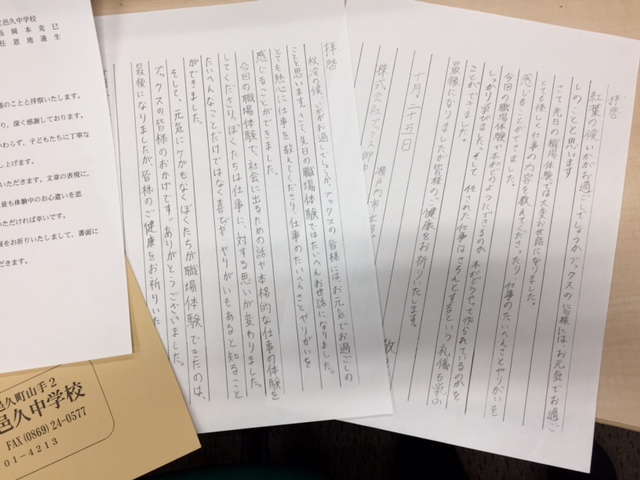 邑久中学校
長 岡 本 克 巳
任 恩 地 蓮 生
のことと拝察いたします。
り，深く感謝しております。
わらず，子どもたちに丁寧な
し上げます。
いただきます。文章の表現に，
後も体験中のお心遣いを思
いただければ幸いです。
をお祈りいたしまして，書面に
きます。
邑久町山手2
邑久中学校
FAX(0869)24-0577
01-4213
拝啓
秋冷の候、いかがお過ごしでしょうか。ブックスの皆様にはお元気でお過ごしの
ことと思います。さて、先日の職場体験ではたいへんお世話になりました。
とても熱心に仕事を教えてくださり、仕事のたいへんさと、やりがいを
感じることができました。
今回の職場体験で、社会に出るための話や本格的な仕事の体験を
してくださり、ぼくたちは仕事に対する思いが変わりました。
たいへんなことだけではなく喜びややりがいもあると知ること
ができました。
そして、元気にけがもなくぼくたちが職場体験できたのは、
ブックスの皆様のおかげです。ありがとうございました。
最後になりましたが、皆様のご健康をお祈りいた
拝啓
紅葉の候、いかがお過ごしでしょうか。ブックスの皆様にはお元気でお過ご
しのことと思います
さて先日の職場体験では大変お世話になりました。
とても優しく仕事の内容を教えてくださったり仕事のたいへんさとやりがいを
感じることができました。
今回の職場体験で本がどのようにできるのか本がどうやって作られているのかを
しっかり学びました。そして任された仕事はきちんとするという礼儀も学ぶ
ことができました。
最後になりましたが皆様のご健康をお祈りいたします。
十月二十五日
瀬戸内市立邑
株式会社ブックス御中